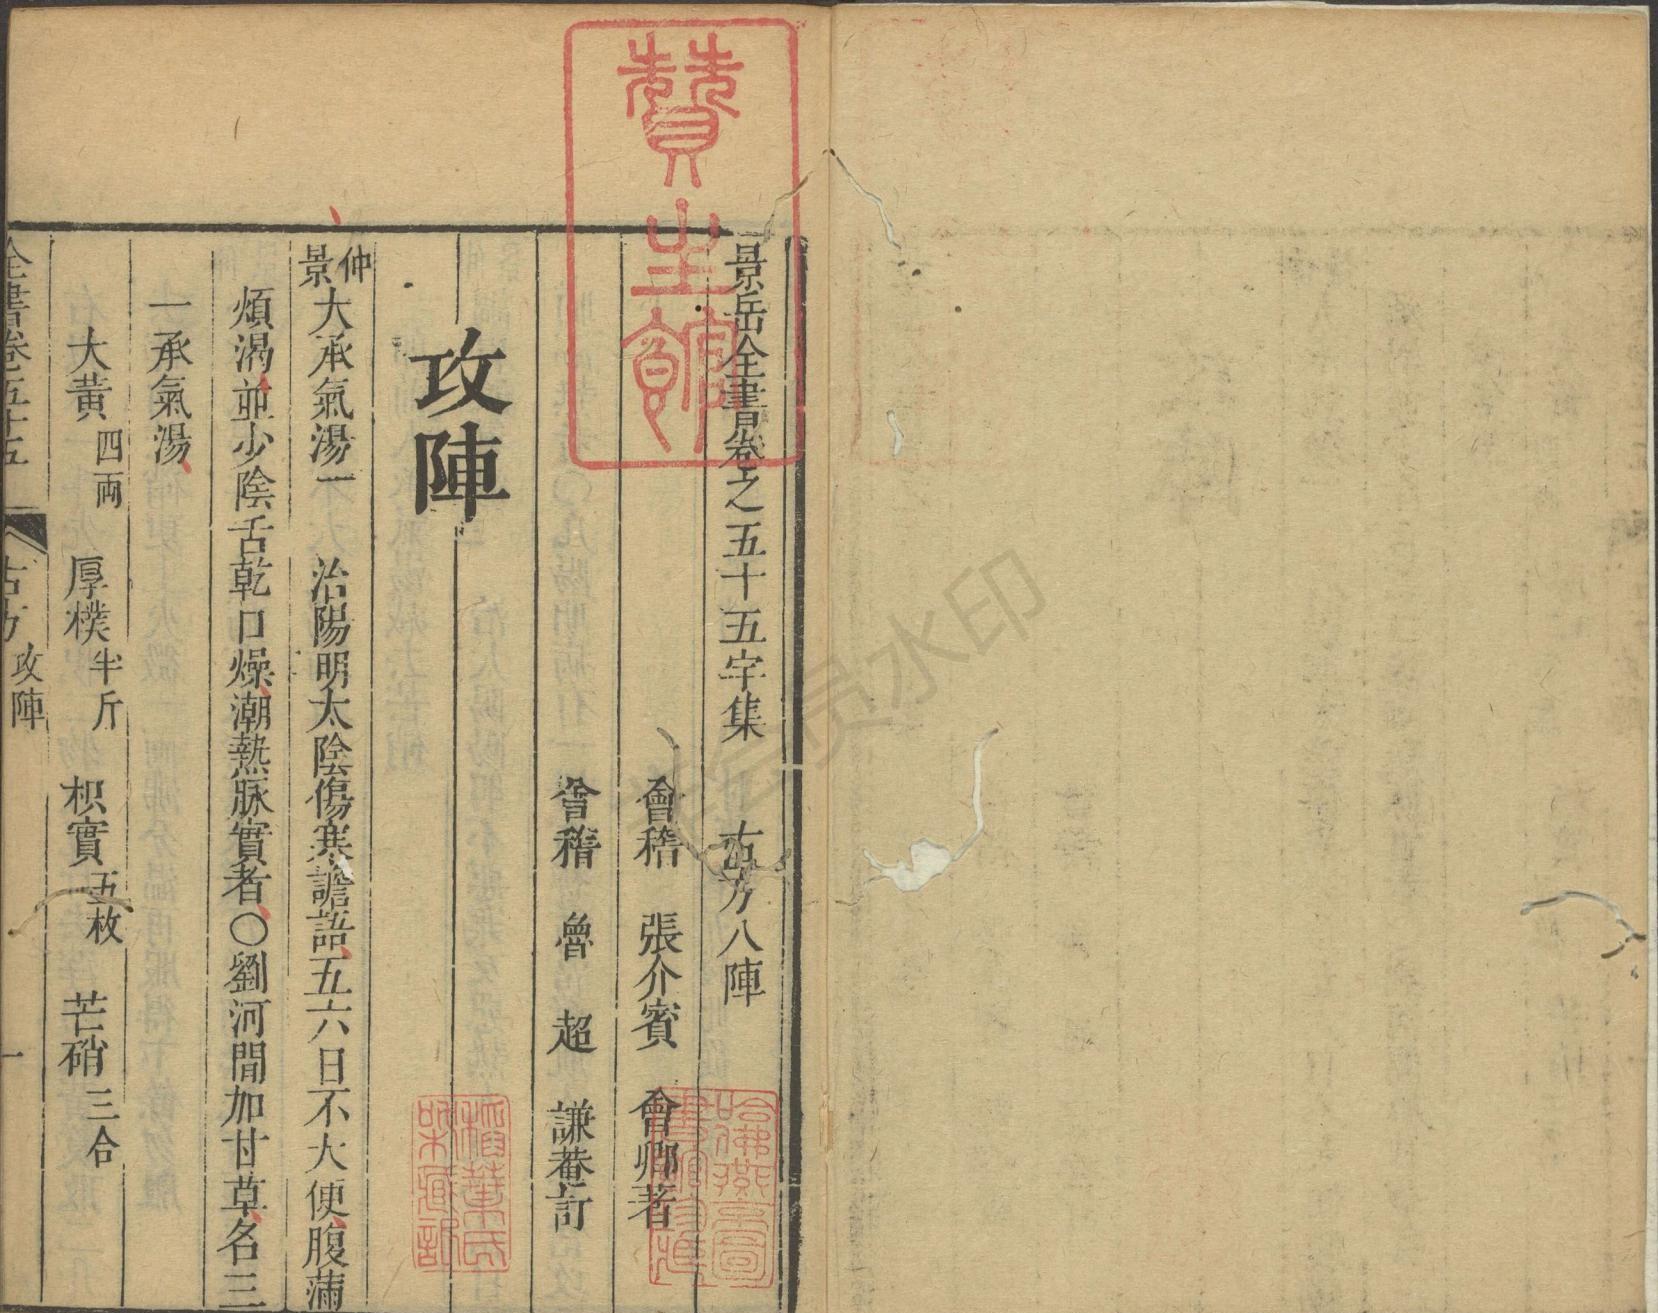 贊生館
景岳全書卷之五十五字集　古方八陣
會稽　張介賓　會卿著
會稽　魯　超　謙菴訂
攻陣
仲景大承氣湯一　治陽明太陰傷寒譫語、五六日不大便、腹滿
煩渴、並少陰舌乾口燥、潮熱脈實者、○劉河間加甘草、名三
一承氣湯、
大黃四兩　厚樸半斤　枳實五枚　芒硝三合
全書卷五十五　古方攻陣　一
哈佛燕京圖書館珍藏
会员水印